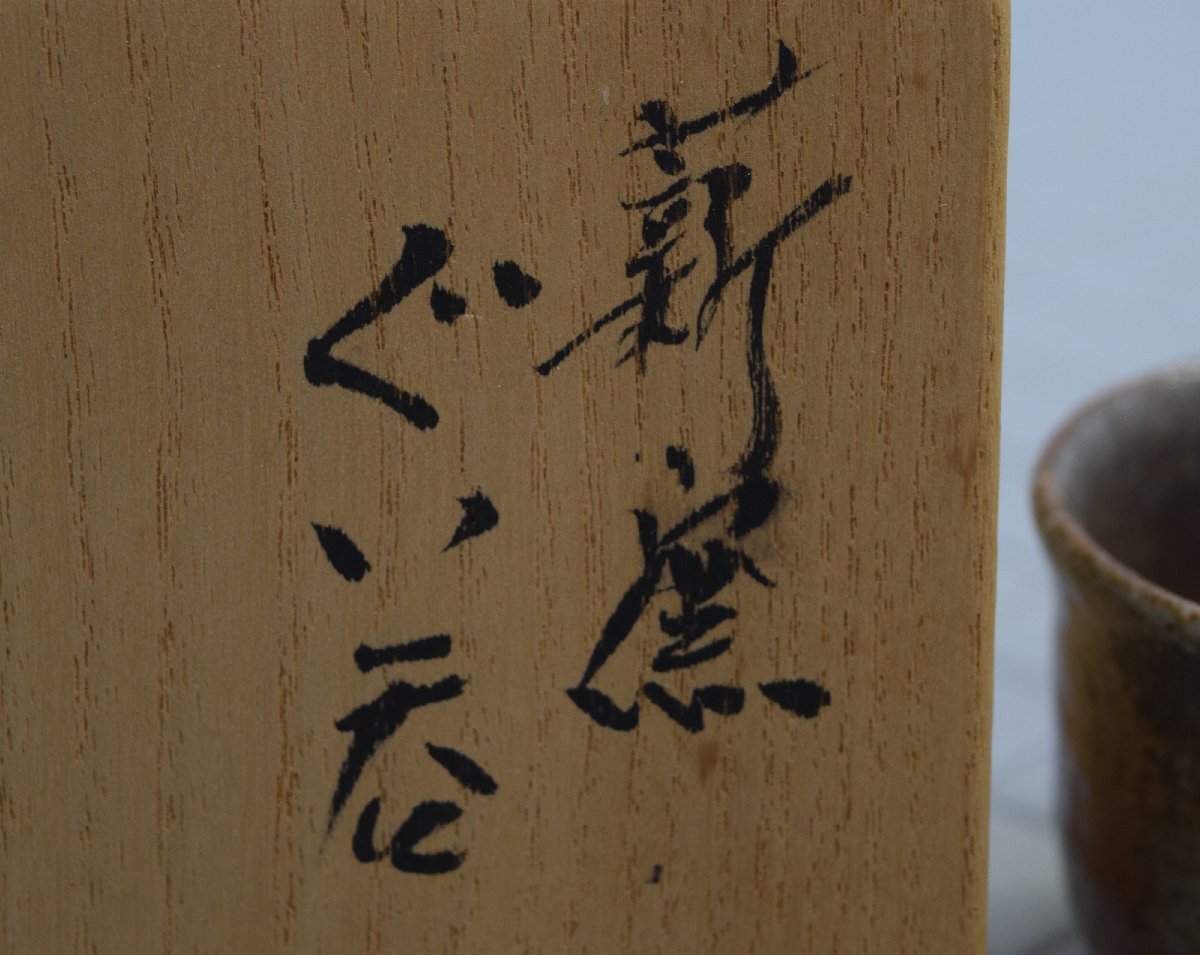 薪窯
ぐい呑